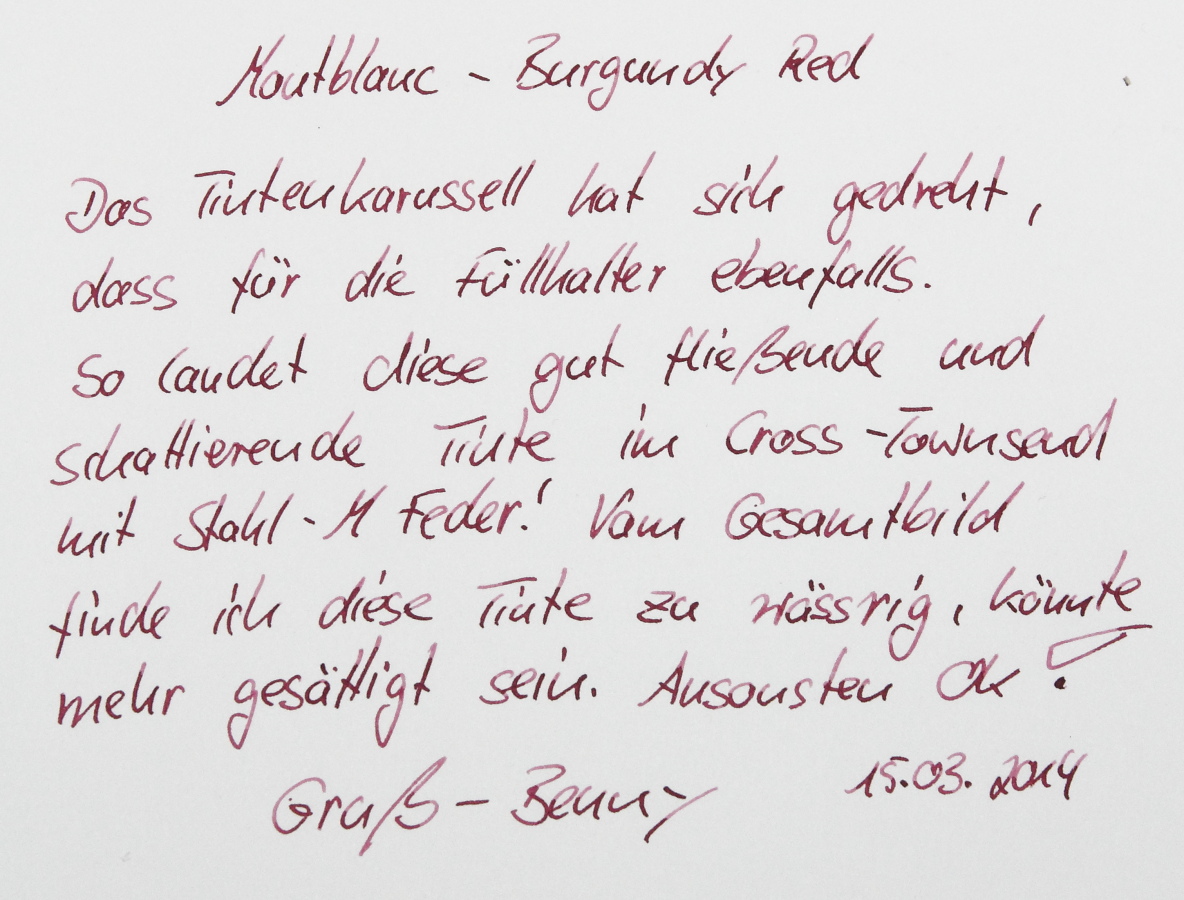 Montblanc - Burgundy Red
Das Tintenkarussell hat sich gedreht,
dass für die Füllhalter ebenfalls.
So landet diese gut fließende und
schattierende Tinte im Cross-Townsend
mit Stahl-M Feder! Vom Gesamtbild
finde ich diese Tinte zu wässrig, könnte
mehr gesättigt sein. Ansonsten Ok!
Gruß - Benny 15.03.2014